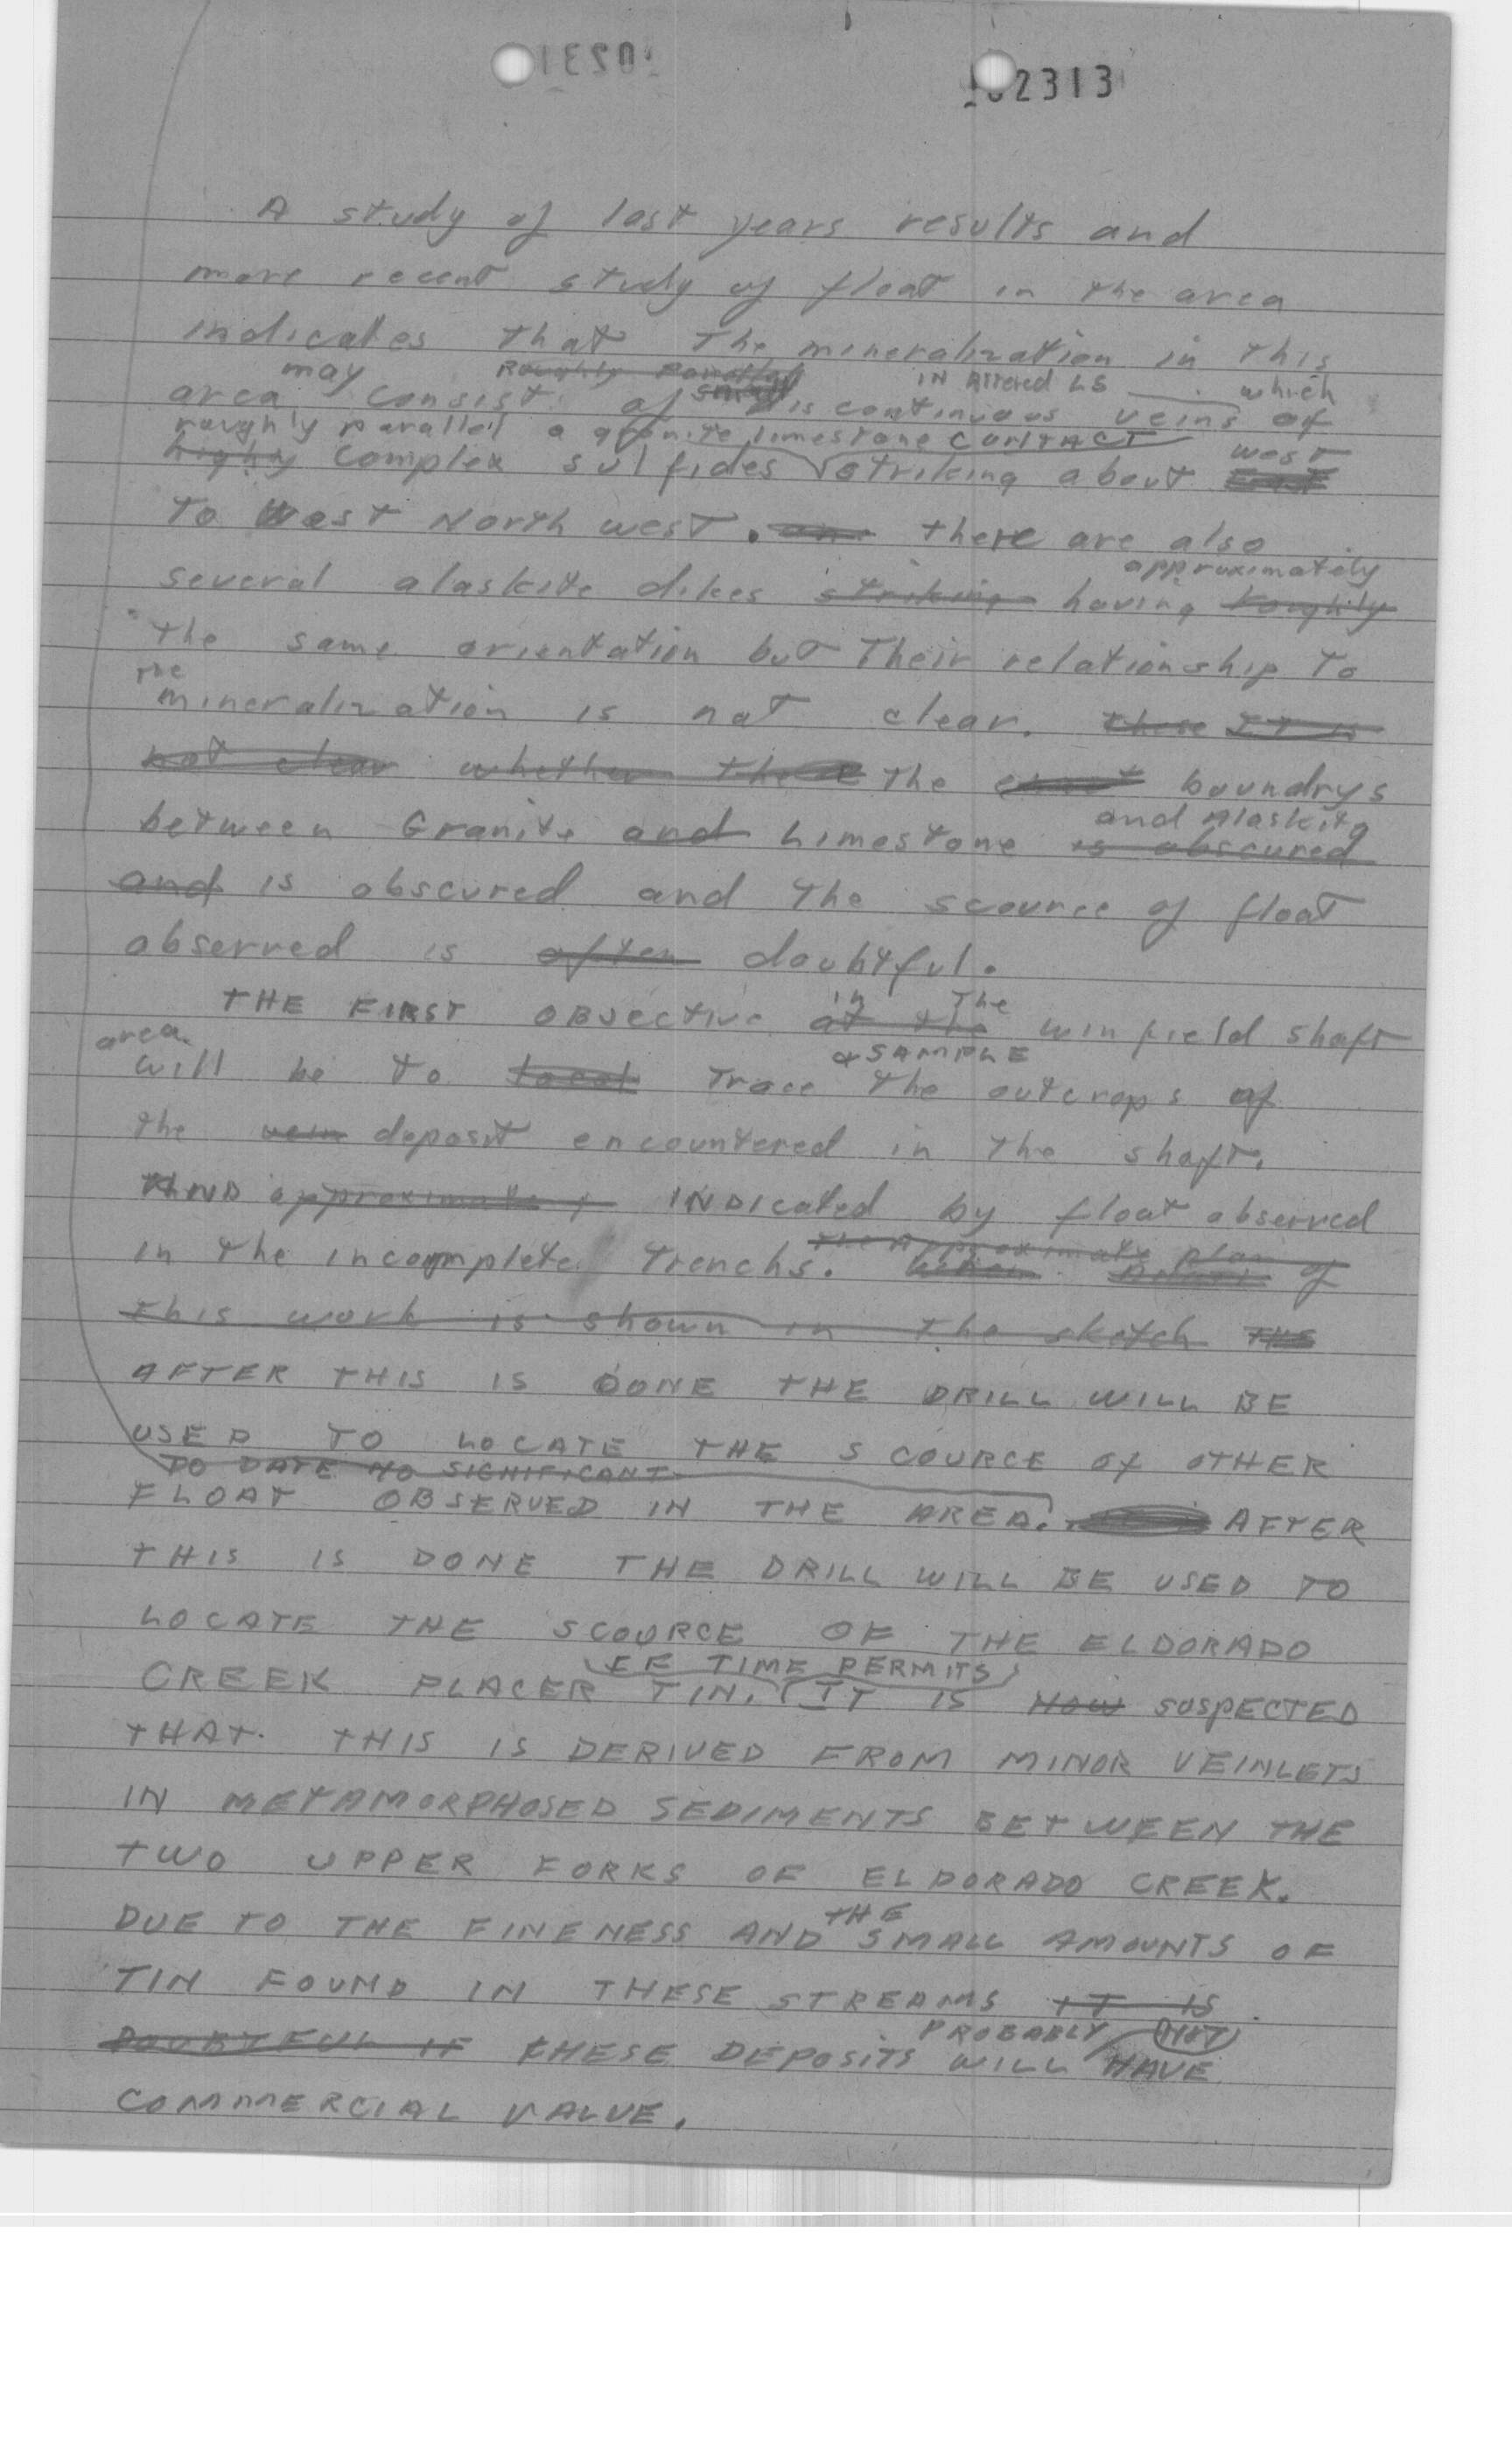 102313
A study of last years results and
more recent study of float in the area
indicates that the mineralization in this
may Roughly Parallel IN Altered LS which
area consist of small discontinuous veins of
roughly parallel a granite limestone CONTACT
highly complex sulfides striking about west
to West North west. there are also
approximately
several alaskite dikes striking having roughly
the same orientation but Their relationship To
the
mineralization is not clear. these IT is
not clear whether the The exact boundrys
and Alaskite
between Granite and Limestone is obscured
and is obscured and The scource of float
observed is often doubtful.
in The
THE FIRST OBJective at the winfield shaft
area
& SAMPLE
will be to Trace the outcrops of
the vein deposit encountered in the shaft.
AND approximate INDIcated by float observed
the Approximate plan of
in the incomplete Trenchs.
this work is shown in the sketch THE
AFTER THIS IS DONE THE DRILL WILL BE
USED TO LOCATE THE SCOURCE Of OTHER
TO DATE NO SIGNIFICANT
FLOAT OBSERVED IN THE AREA. AFTER
THIS IS DONE THE DRILL WILL BE USED TO
LOCATE THE SCOURCE OF THE ELDORADO
IF TIME PERMITS
CREEK PLACER TIN. IT IS NOW SUSPECTED
THAT THIS IS DERIVED FROM MINOR VEINLETS
IN METAMORPHOSED SEDIMENTS BETWEEN THE
TWO UPPER FORKS OF ELDORADO CREEK.
THE
DUE TO THE FINENESS AND SMALL AMOUNTS OF
TIN FOUND IN THESE STREAMS IT IS
PROBABLY NOT
DOUBTFUL IF THESE DEPOSITS WILL HAVE
COMMERCIAL VALUE.